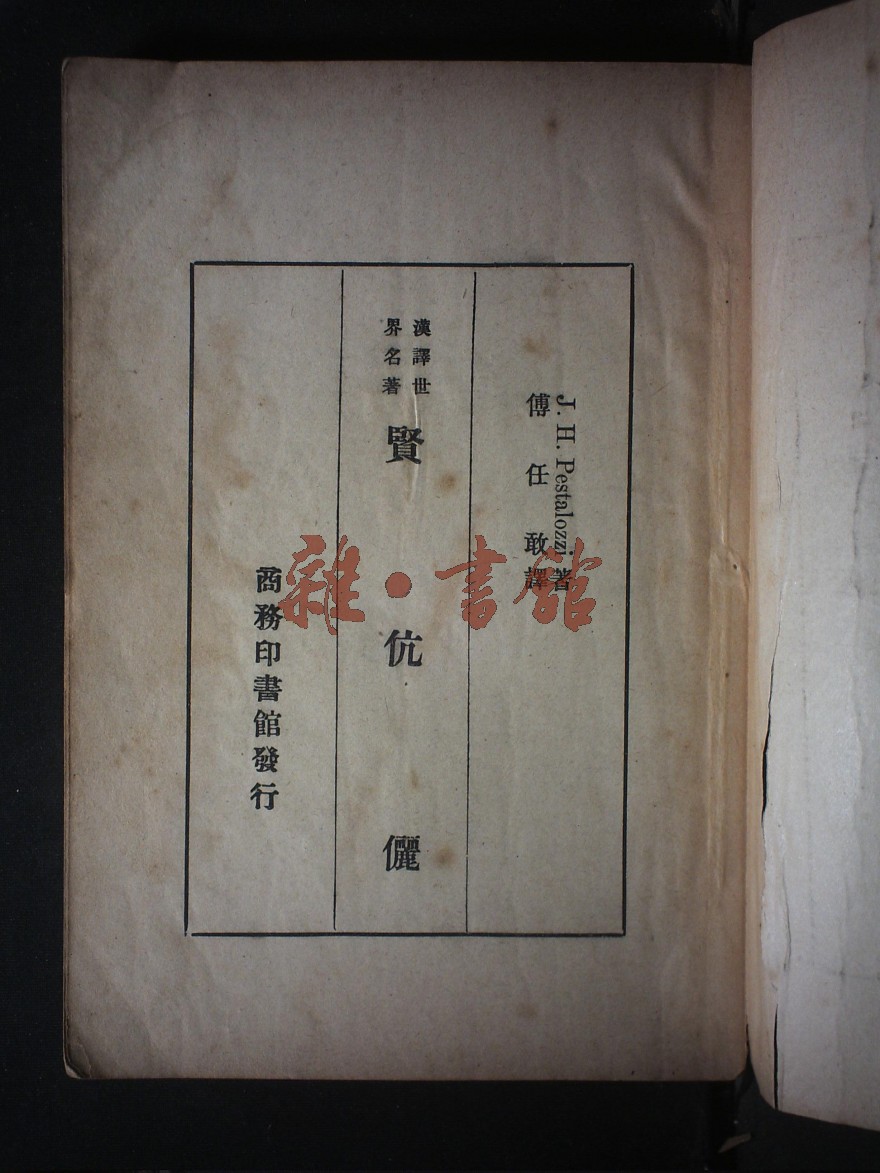 J. H. Pestalozzi 著
傅任敢譯
漢譯世
界名著
賢伉儷
商務印書館發行
雜·書館